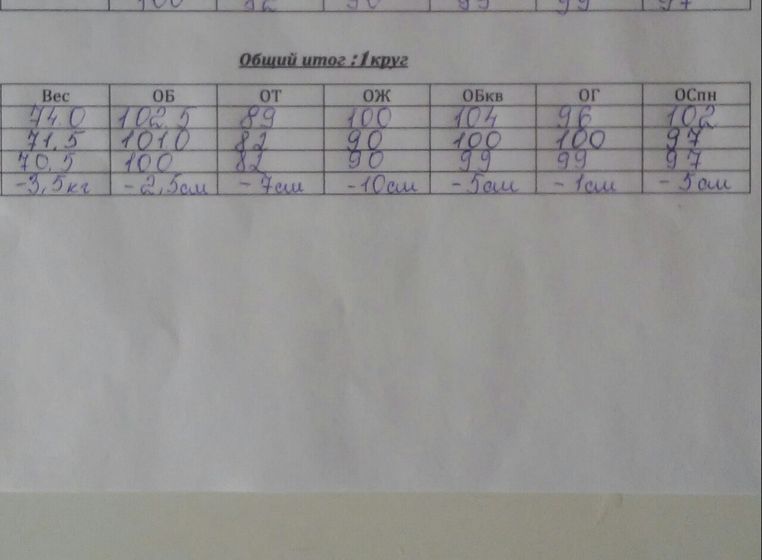 100 92 90 99 99 97
Общий итог : 1 круг
Вес ОБ ОТ ОЖ ОБкв ОГ ОСпн
74.0 102.5 89 100 104 96 102
71.5 101.0 82 90 100 100 97
70.5 100 82 90 99 99 97
-3,5кг -2,5см -7см -10см -5см -1см -5см